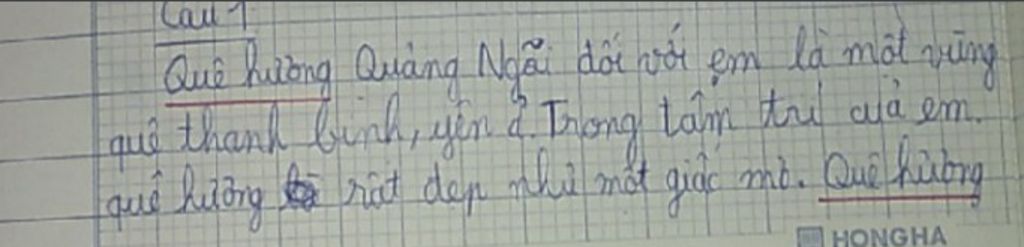 Câu 1
Quê hương Quảng Ngãi đối với em là một vùng
quê thanh bình, yên ả. Trong tâm trí của em.
quê hương rất đẹp như một giấc mơ. Quê hương
HONGHA